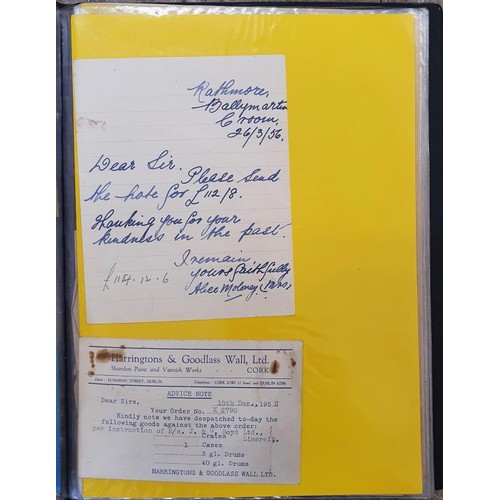 Rathmore,
Ballymartin
Croom,
26/3/56.
Dear Sir. Please send
the note for £112/8.
thanking you for your
kindness in the past.
I remain
yours faithfully
Alice Moloney (Mrs).
£114.12.6
Harringtons & Goodlass Wall, Ltd.
Shandon Paint and Varnish Works
CORK
ADVICE NOTE
Dear Sirs, 18th Dec., 1952
Your Order No. K 2790
Kindly note we have despatched to-day the
following goods against the above order:
per instruction of M/s. J. & Boyd Ltd.,
Crates Limerick.
1 Cases
5 gl. Drums
40 gl. Drums
HARRINGTONS & GOODLASS WALL LTD.